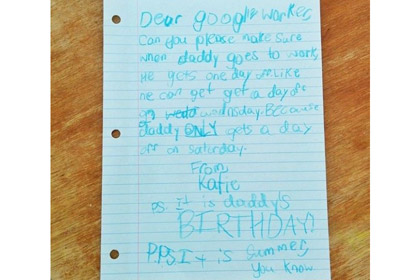 Dear google worker,
Can you please make sure
when daddy goes to work,
He gets one day off. Like
he can get get a day off
on wedo wednesday. Because
daddy ONLY gets a day
off on saturday.
From,
Katie
P.S. It is daddy's
BIRTHDAY!
P.P.S It is summer,
you know